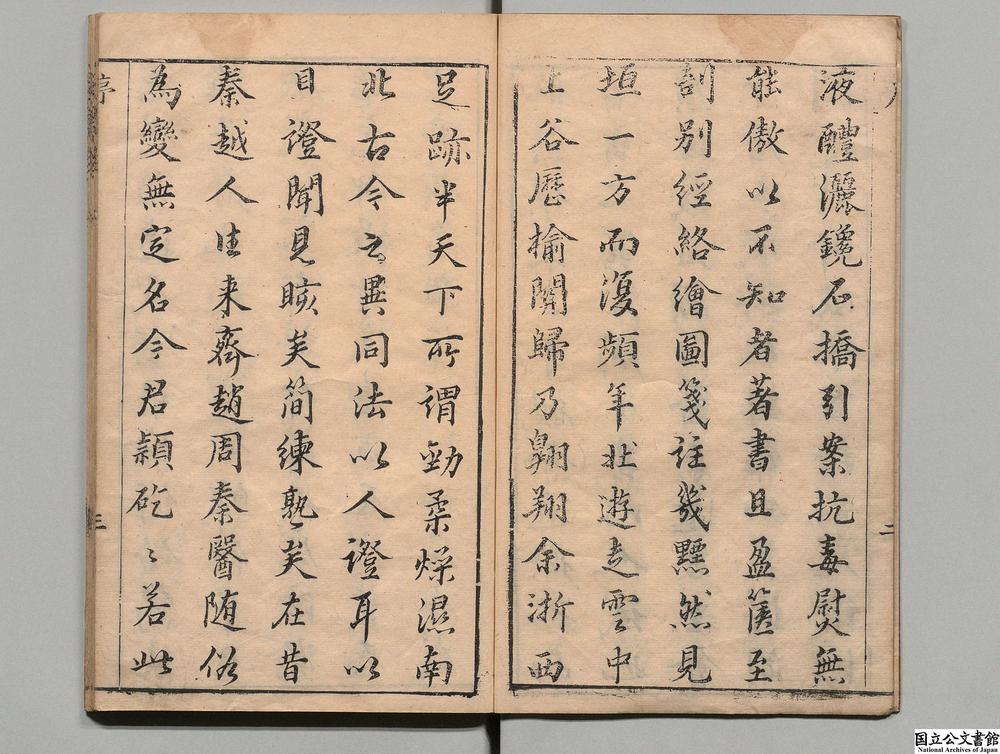 液醴灑鑱石撟引案抗毒熨無
能傲以不知者著書且盈篋至
剖別經絡繪圖箋註幾黯然見
垣一方而復頻年壯遊走雲中
上谷歷揄關歸乃翱翔余浙西
二
足跡半天下所謂勁柔燥濕南
北古今之異同法以人證耳以
目證聞見晐矣簡練熟矣在昔
秦越人往来齊趙周秦醫随俗
為變無定名今君穎矻〻若此
序
三
国立公文書館
National Archives of Japan